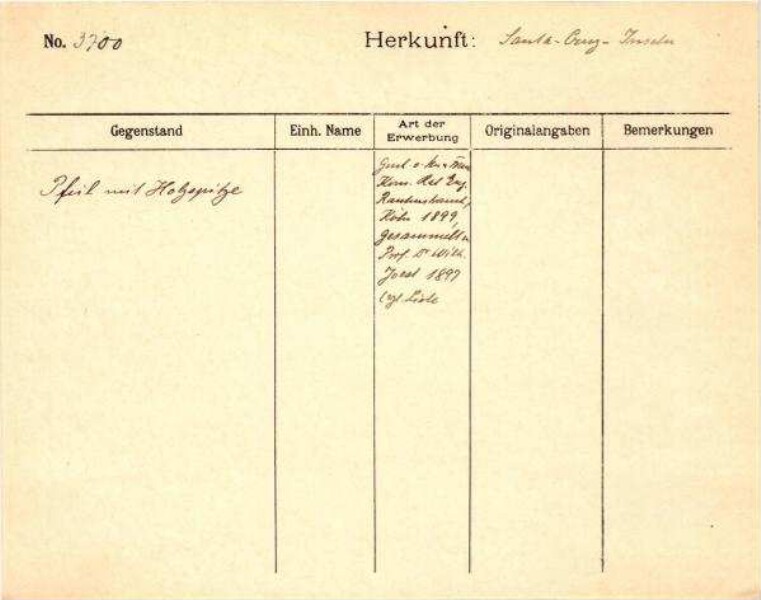 No. 3700
Herkunft: Santa-Cruz-Inseln
Gegenstand
Einh. Name
Art der Erwerbung
Originalangaben
Bemerkungen
Pfeil mit Holzspitze
Gesch. v. Frau
Kom. Rat Eug.
Rautenstrauch,
Köln 1899,
gesammelt v.
Prof. Dr Wilh.
Joest 1897
vgl. Liste